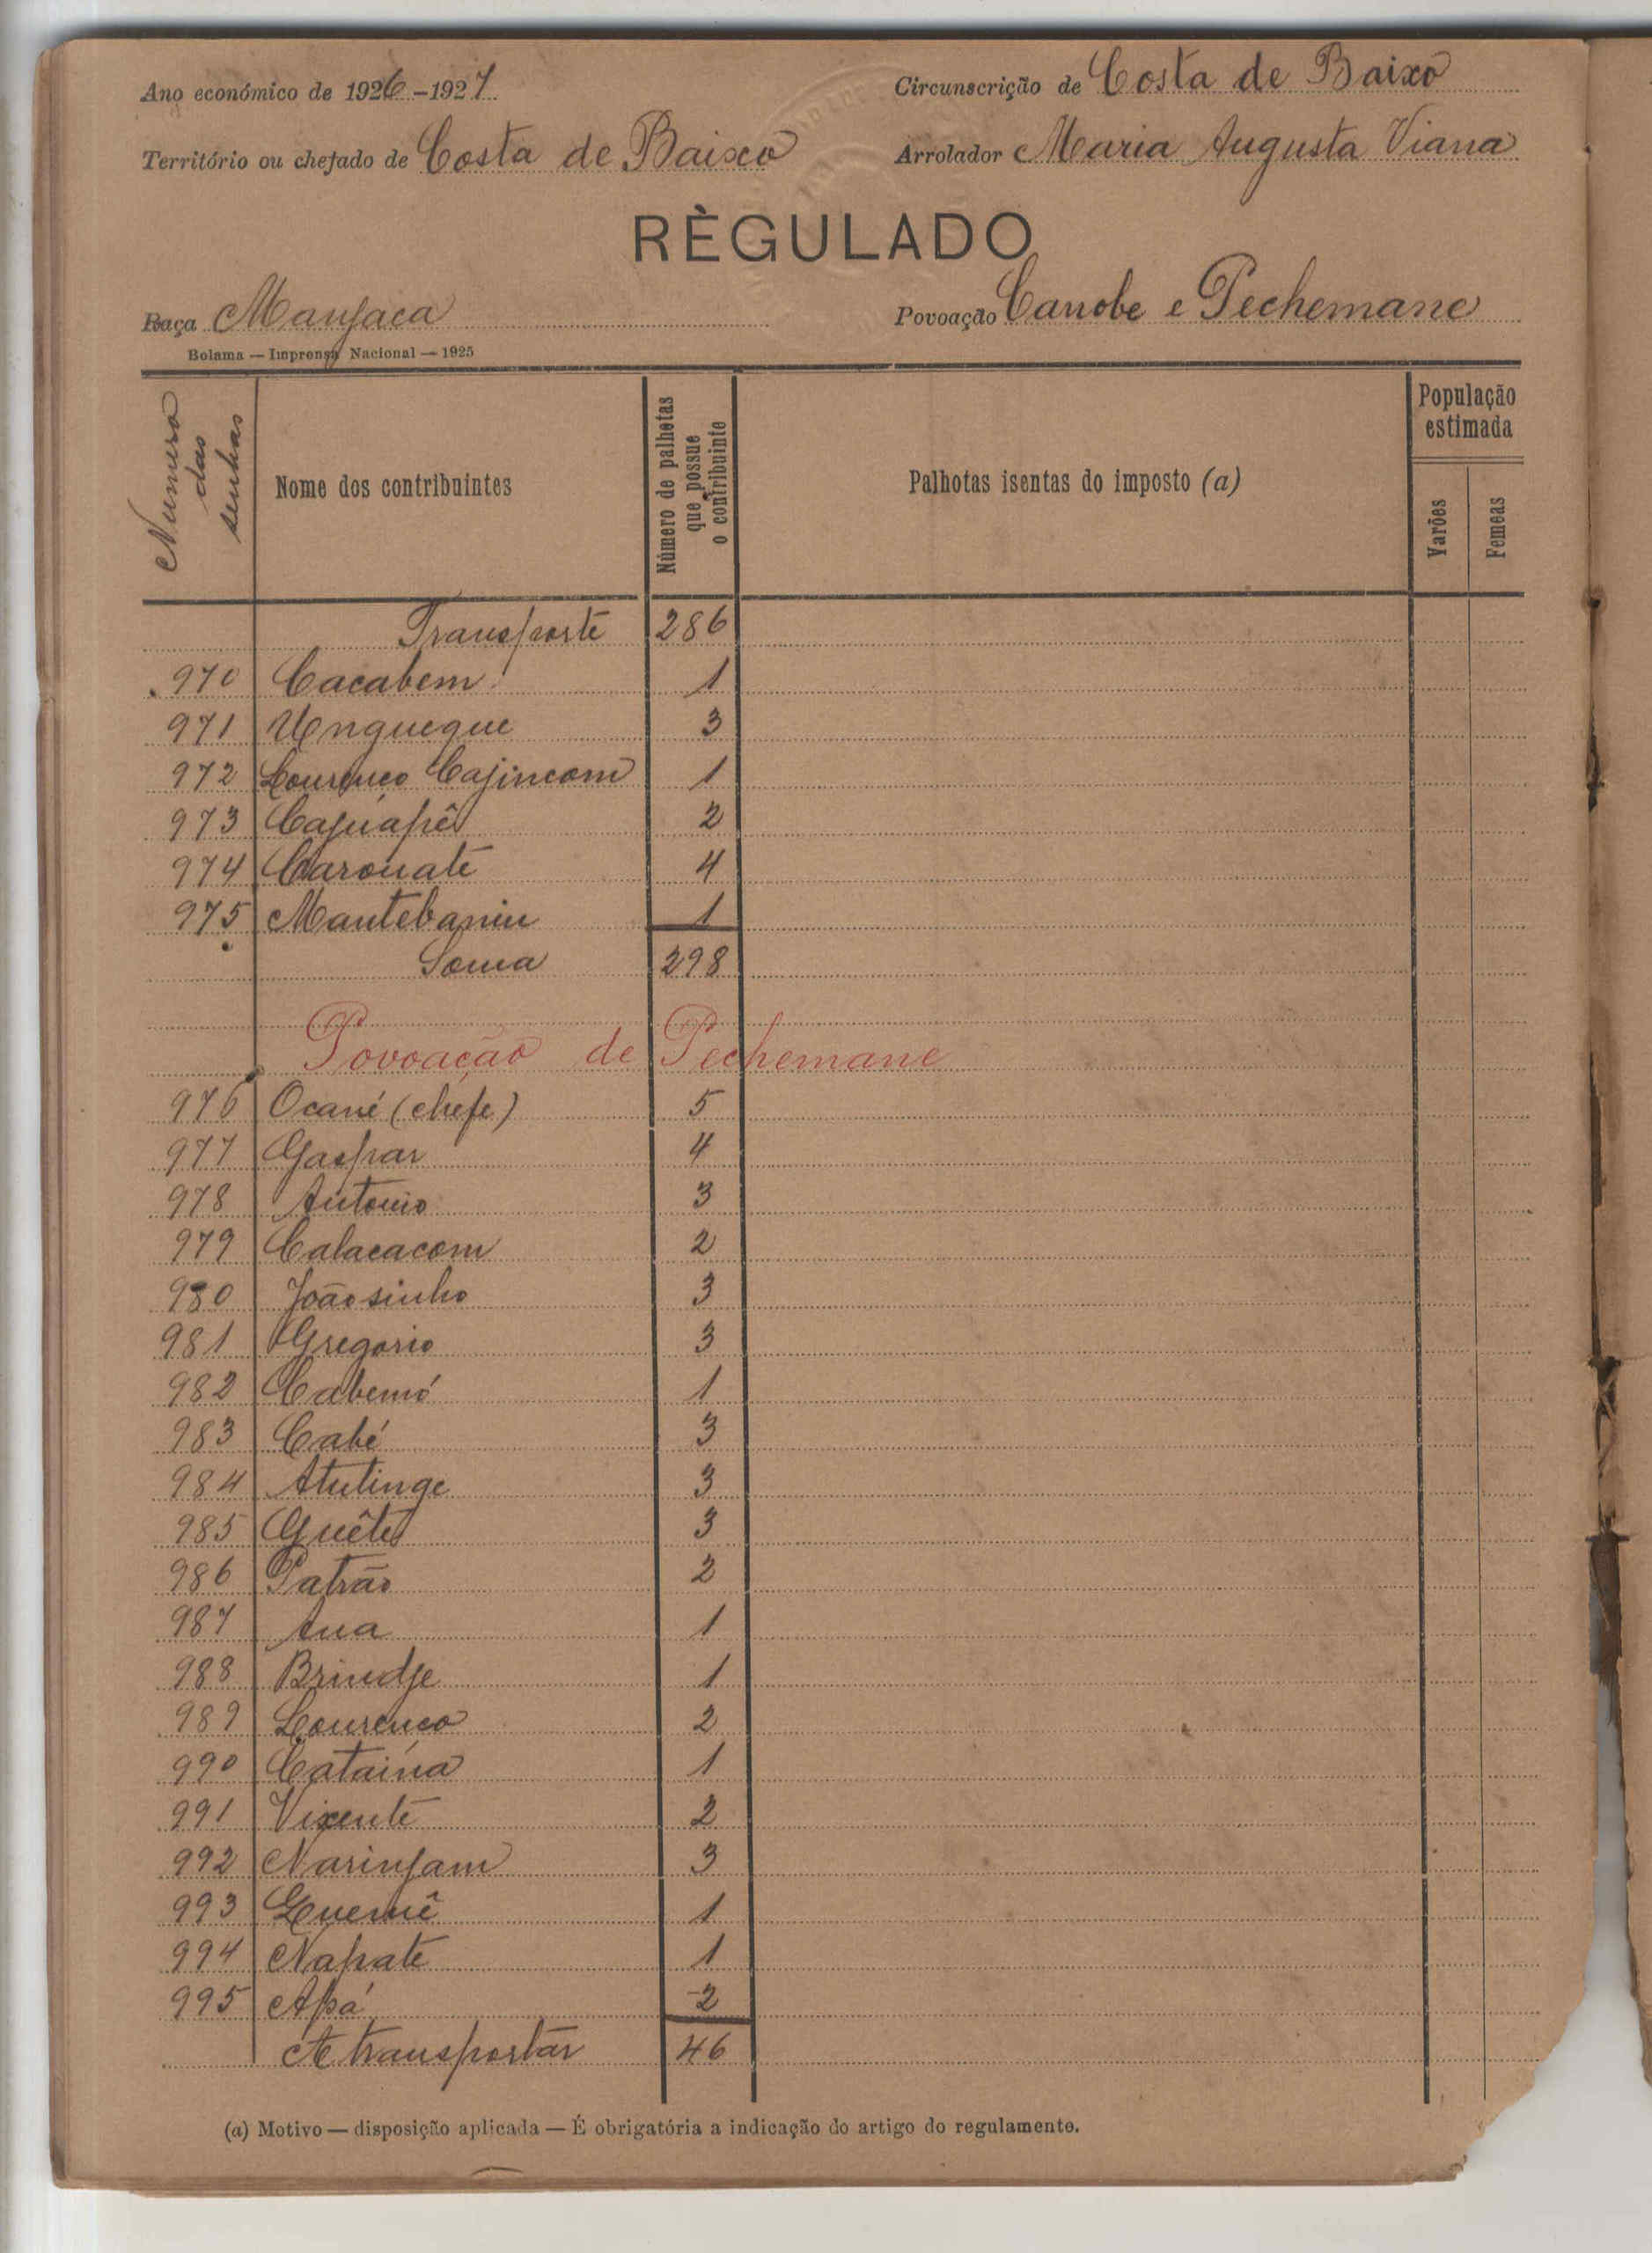 Ano económico de 1926-1927
Circunscrição de Costa de Baixo
Território ou chefado de Costa de Baixo
Arrolador Maria Augusta Viana
RÈGULADO
Raça Manjaca
Povoação Canobe e Pechemane
Bolama — Imprensa Nacional — 1925
Numero das senhas
Nome dos contribuintes
Número de palhotas que possue o contribuinte
Palhotas isentas do imposto (a)
População estimada
Varões
Femeas
Transporte 286
970 Cacabem 1
971 Ungueque 3
972 Lourenço Cajincom 1
973 Cajuapê 2
974 Carouate 4
975 Mantebaniu 1
Soma 298
Povoação de Pechemane
976 Ocané (chefe) 5
977 Gaspar 4
978 Antonio 3
979 Calacacom 2
980 Joãosinho 3
981 Gregorio 3
982 Cabemó 1
983 Cabé 3
984 Atutinge 3
985 Guête 3
986 Patrão 2
987 Ana 1
988 Brindje 1
989 Lourenço 2
990 Cataina 1
991 Vixente 2
992 Narinjam 3
993 1
994 Napate 1
995 Apá 2
A transportar 46
(a) Motivo — disposição aplicada — É obrigatória a indicação do artigo do regulamento.